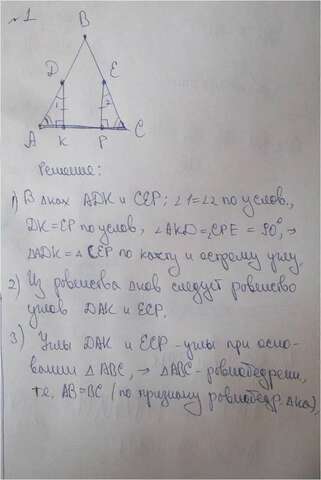 №1
B
D
E
1
2
A
K
P
C
Решение:
1) В Δках ADK и CEP: ∠1=∠2 по услов.,
DK=EP по услов, ∠AKD=∠CPE = 90°, →
ΔADK=Δ CEP по катету и острому углу.
2) Из равенства Δков следует равенство
углов DAK и ECP.
3) Углы DAK и ECP - углы при осно-
вании Δ ABC, → ΔABC - равнобедренн,
т.е. AB=BC (по признаку равнобедр. Δка),